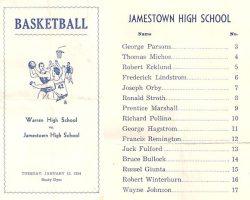 BASKETBALL
Warren High School
vs.
Jamestown High School
TUESDAY, JANUARY 12, 1954
JAMESTOWN HIGH SCHOOL
Name No.
George Parsons 3
Thomas Michos 4
Robert Ecklund 5
Frederick Lindstrom 6
Joseph Orby 7
Ronald Stroth 8
Prentice Marshall 9
Richard Pollino 10
George Hagstrom 11
Francis Remington 12
Jack Fulford 13
Bruce Bullock 14
Russel Giunta 15
Robert Winterburn 16
Wayne Johnson 17